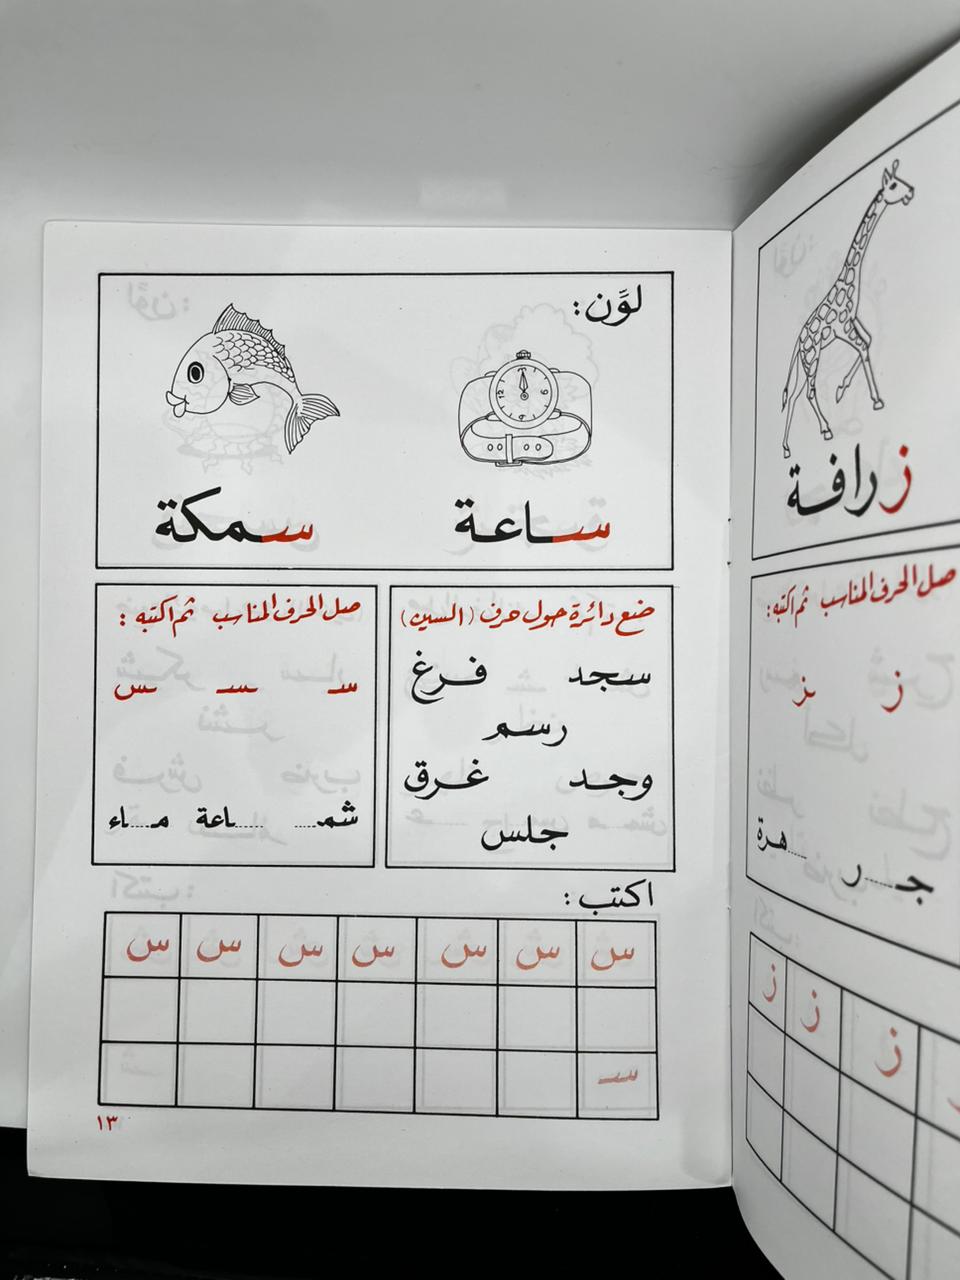 زرافة
صل الحرف المناسب ثم اكتبه :
ز ـز
جـ.....ر .....هرة
ز ز ز
لوِّن :
ساعة سمكة
ضع دائرة حول حرف (السين)
سجد فرغ
رسم
وجد غرق
جلس
صل الحرف المناسب ثم اكتبه :
سـ ـسـ ـس
شمـ..... .....ـاعة مـ.....ـاء
اكتب :
س س س س س س س
سـ
١٣